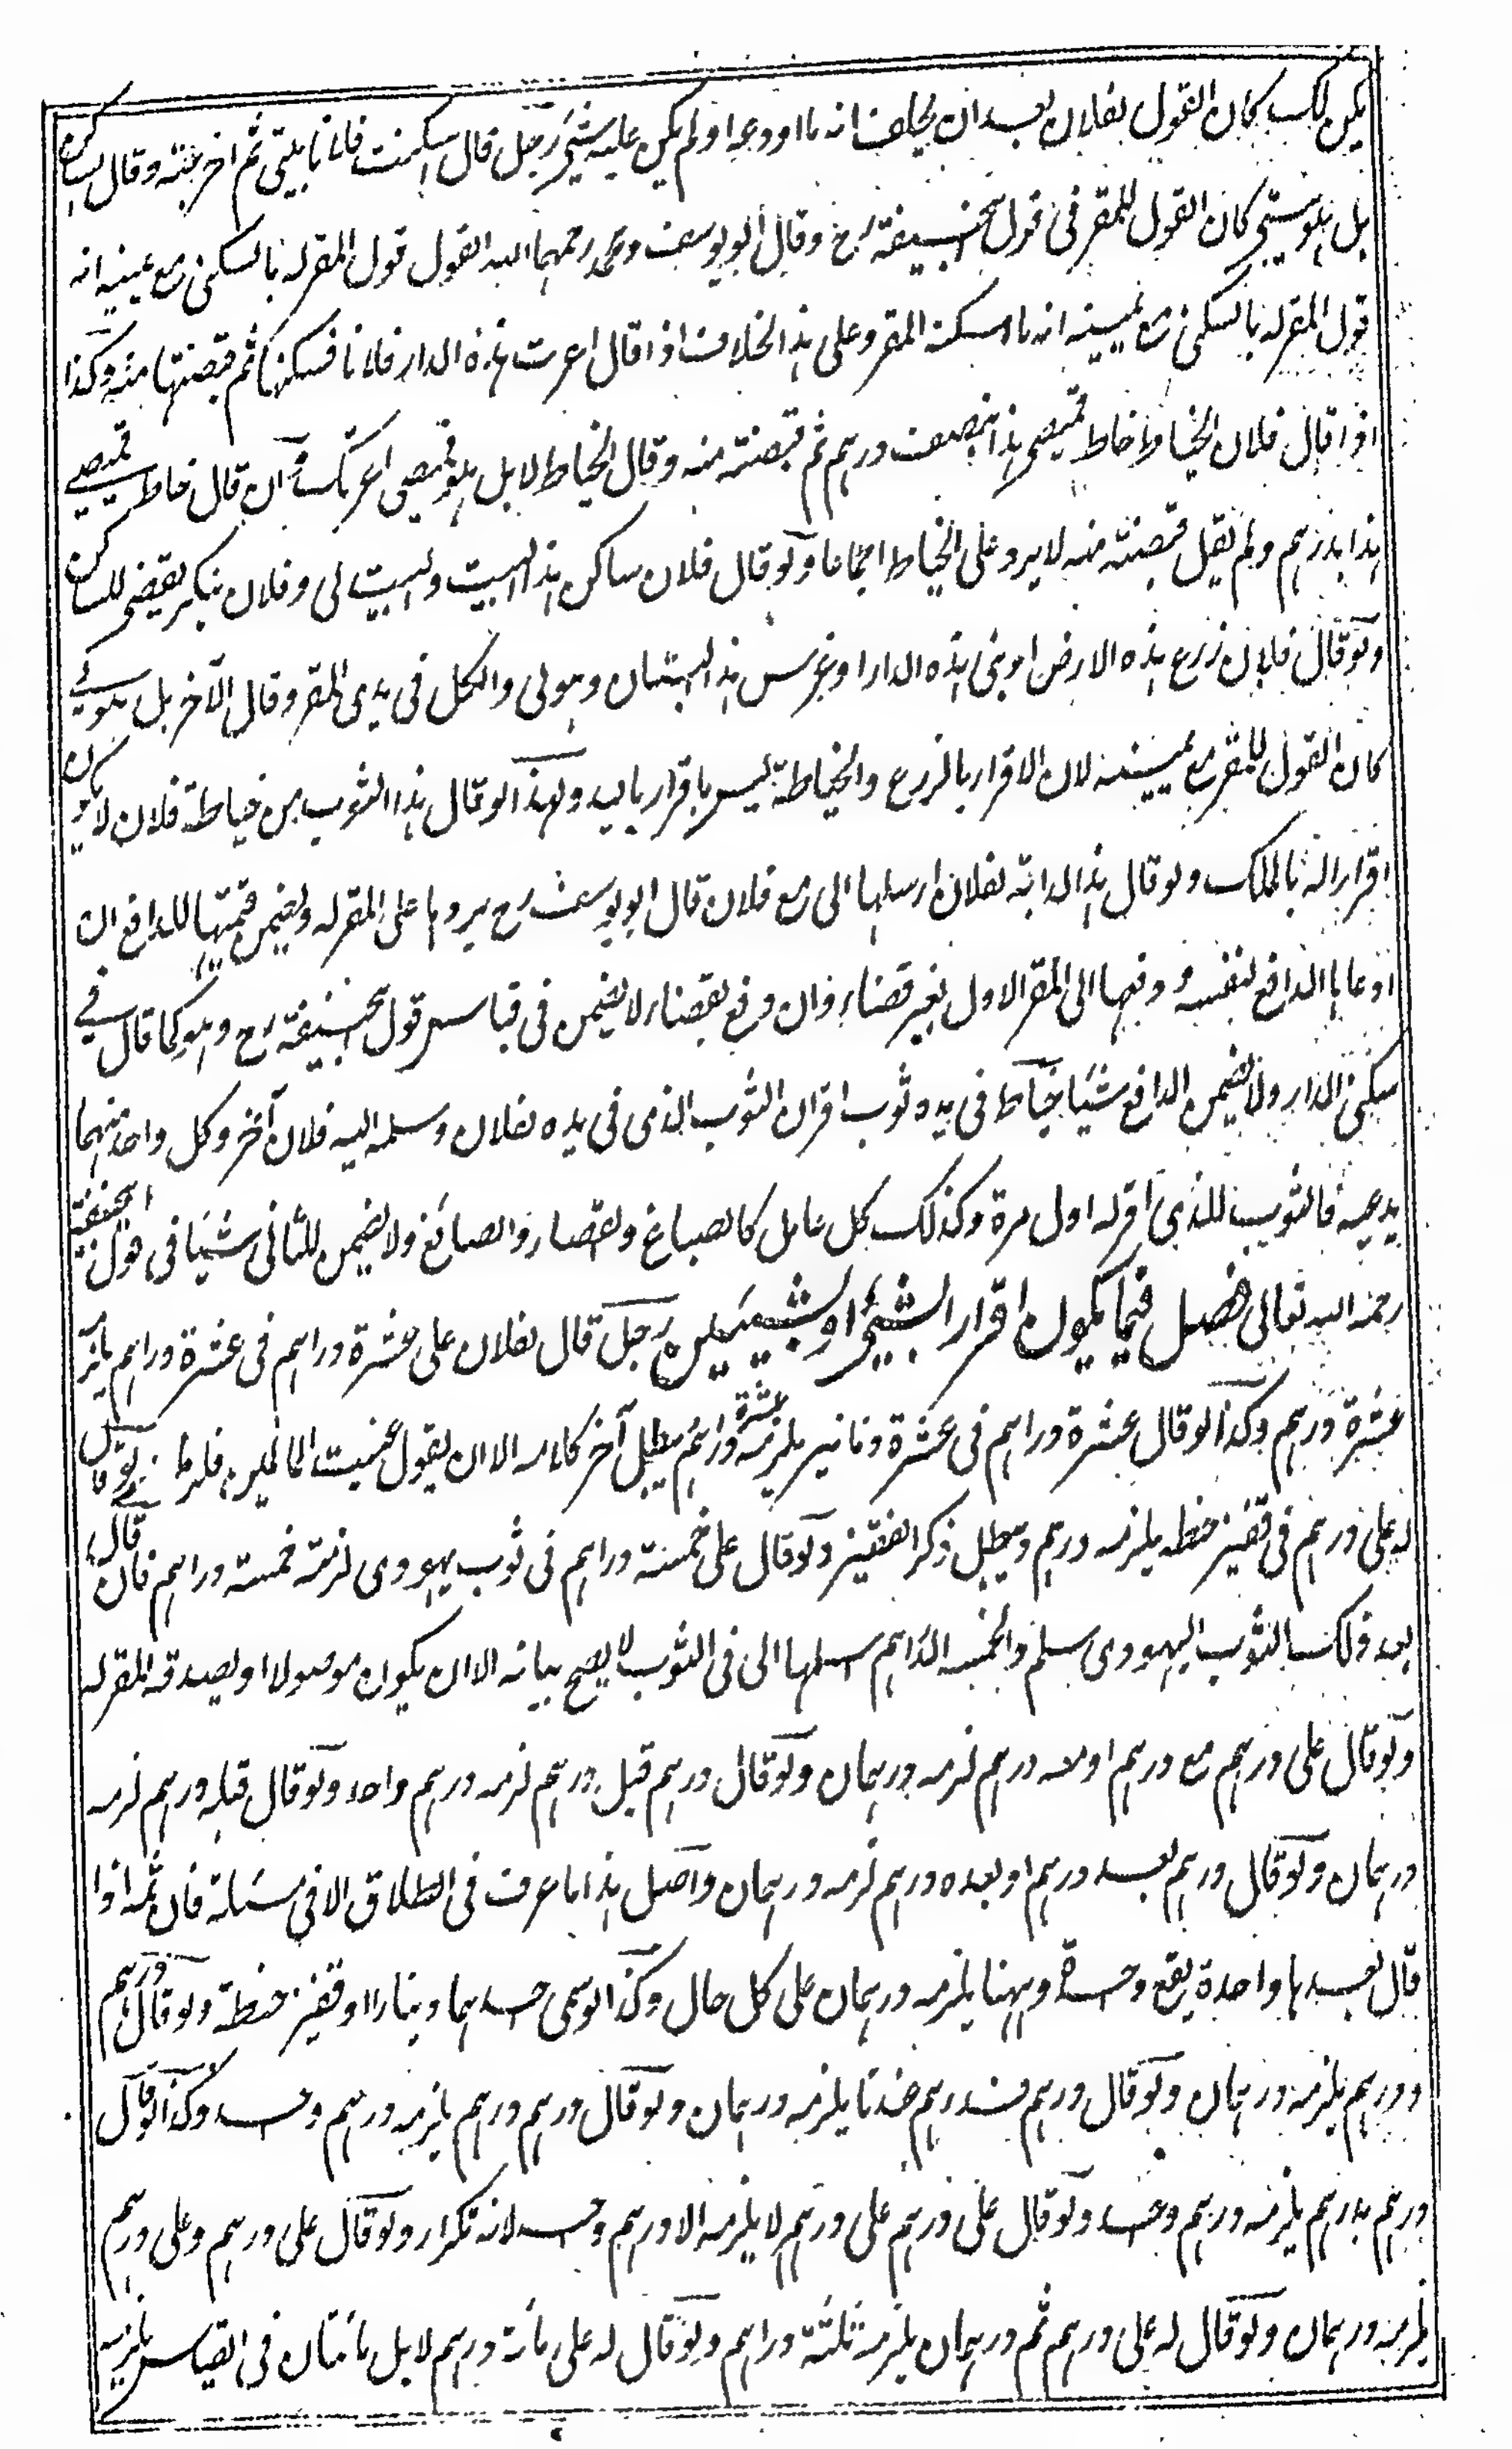 يكن لك كان القول لفلان بعد ان يحلف انه ما اودعه او لم يكن عليه شيء رجل قال اسكنت فلانا بيتي ثم اخرجته وقال الساكن
بل هو بيتي كان القول للمقر في قول ابي حنيفة رح وقال ابو يوسف ومحمد رحمهما الله القول قول المقر له بالسكنى مع يمينه انه
قول المقر له بالسكنى مع يمينه انه ما اسكنه المقر وعلى هذا الخلاف اذا قال اعرت هذه الدار فلانا فسكنها ثم قبضتها منه وكذا
اذا قال فلان الخياط خاط قميصي هذا بنصف درهم ثم قبضته منه وقال الخياط لا بل هو قميصي اعرتكه وان قال خاط قميصي
هذا بدرهم ولم يقل قبضته منه لا يرد على الخياط اجماعا ولو قال فلان ساكن هذا البيت والبيت لي وفلان ينكر يقضى للساكن
ولو قال فلان زرع هذه الارض او بنى هذه الدار او غرس هذا البستان وهو لي والكل في يدي المقر وقال الآخر بل هو لي
كان القول للمقر مع يمينه لان الاقرار بالزرع والخياطة ليس باقرار باليد ولهذا لو قال هذا الثوب من خياطة فلان لا يكون
اقرارا له بالملك ولو قال هذا الدابة لفلان ارسلها الي مع فلان قال ابو يوسف رح يردها على المقر له ويضمن قيمتها للدافع ان
ادعاها الدافع لنفسه ودفعها الى المقر الاول بغير قضاء وان دفع بقضاء لا يضمن في قياس قول ابي حنيفة رح وهو كما قال في
سكنى الدار ولا يضمن الدافع شيئا خياط في يده ثوب اقر ان الثوب الذي في يده لفلان وسلمه اليه فلان آخر وكل واحد منهما
يدعيه فالثوب للذي اقر له اول مرة وكذلك كل عامل كالصباغ والقصار والصائغ ولا يضمن للثاني شيئا في قول ابي حنيفة
رحمه الله تعالى فصل فيما يكون اقرار الشيء او بشيئين رجل قال لفلان علي عشرة دراهم في عشرة دراهم يلزمه
عشرة درهم وكذا لو قال عشرة دراهم في عشرة دنانير يلزمه عشرة دراهم يبطل آخر كلامه الا ان يقول عنيت المالين فلزماه ولو قال
له علي درهم في قفيز حنطه يلزمه درهم ويبطل ذكر القفيز ولو قال علي خمسة دراهم في ثوب يهودي لزمته خمسة دراهم فان قال
بعد ذلك الثوب اليهودي سلم والخمسه الدراهم اسلمها الي في الثوب لا يصح بيانه الا ان يكون موصولا او يصدقه المقر له
ولو قال علي درهم مع درهم او معه درهم لزمه درهمان ولو قال درهم قبل درهم لزمه درهم واحد ولو قال قبله درهم لزمه
درهمان ولو قال درهم بعد درهم او بعده درهم لزمه درهمان واصل هذا ما عرف في الطلاق الا في مسئلة فان ثمه اذا
قال بعدها واحدة يقع وحدة وههنا يلزمه درهمان على كل حال وكذا لو سمى احدهما دينارا او قفيز حنطة ولو قال درهم
ودرهم يلزمه درهمان ولو قال درهم فدرهم عندنا يلزمه درهمان ولو قال درهم درهم يلزمه درهم واحد وكذا لو قال
درهم بدرهم يلزمه درهم واحد ولو قال علي درهم علي درهم لا يلزمه الا درهم واحد لانه تكرار ولو قال علي درهم وعلي درهم
يلزمه درهمان ولو قال له علي درهم ثم درهمان يلزمه ثلثة دراهم ولو قال له علي مائة درهم لا بل مائتان في القياس يلزمه